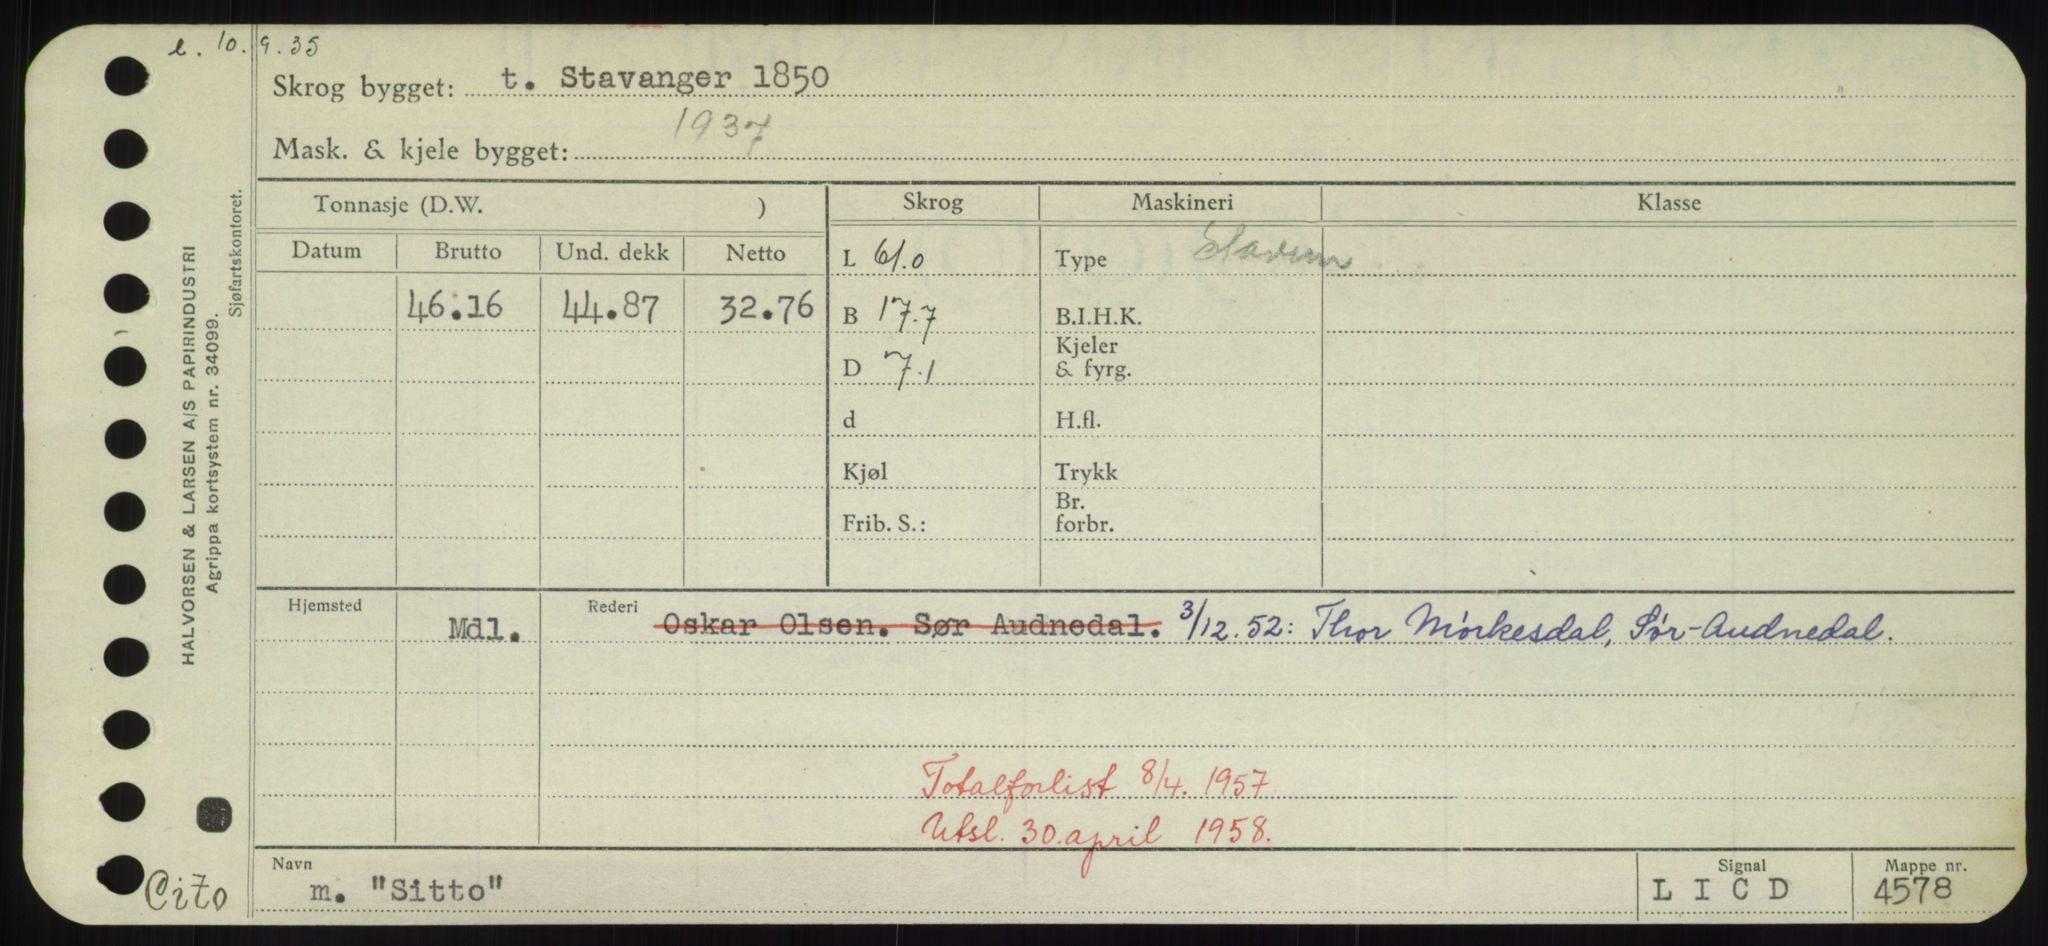 e. 10.9.35
Skrog bygget: t. Stavanger 1850
1937
Mask. & kjele bygget:
Tonnasje (D.W. ) Skrog Maskineri Klasse
Datum Brutto Und. dekk Netto L 61.0 Type
46.16 44.87 32.76 B 17.7 B.I.H.K.
Kjeler
D 7.1 & fyrg.
d H.fl.
Kjøl Trykk
Br.
Frib. S.: forbr.
Hjemsted Mdl. Rederi Oskar Olsen. Sør Audnedal. 3/12.52: Thor Mörkesdal, Sör-Audnedal.
Totalforlist 8/4. 1957
Utsl. 30.april 1958.
Navn Signal Mappe nr.
m. "Sitto" L I C D 4578
Cito
HALVORSEN & LARSEN A/S PAPIRINDUSTRI
Agrippa kortsystem nr. 34099.
Sjøfartskontoret.